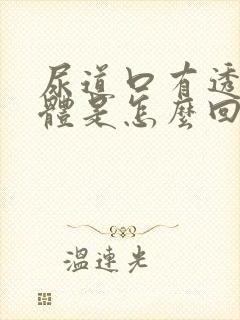 尿道口有透
體是怎麼回
溫連光